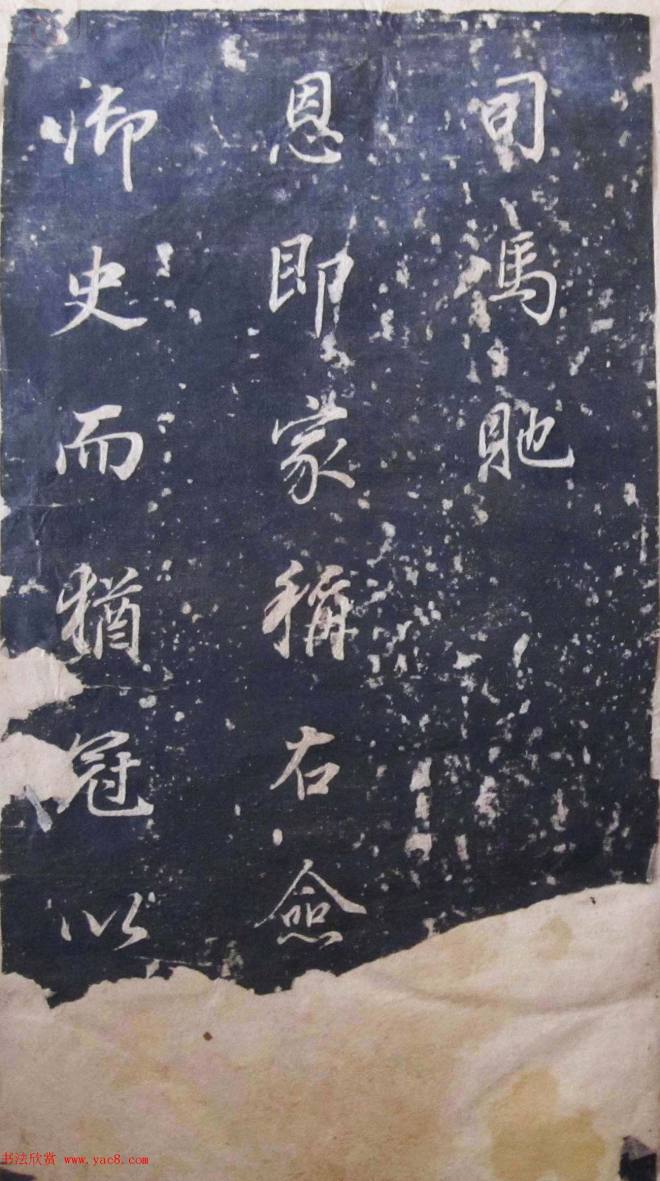 司馮貤
恩即家稱右僉
御史而猶冠以
书法欣赏 www.yac8.com